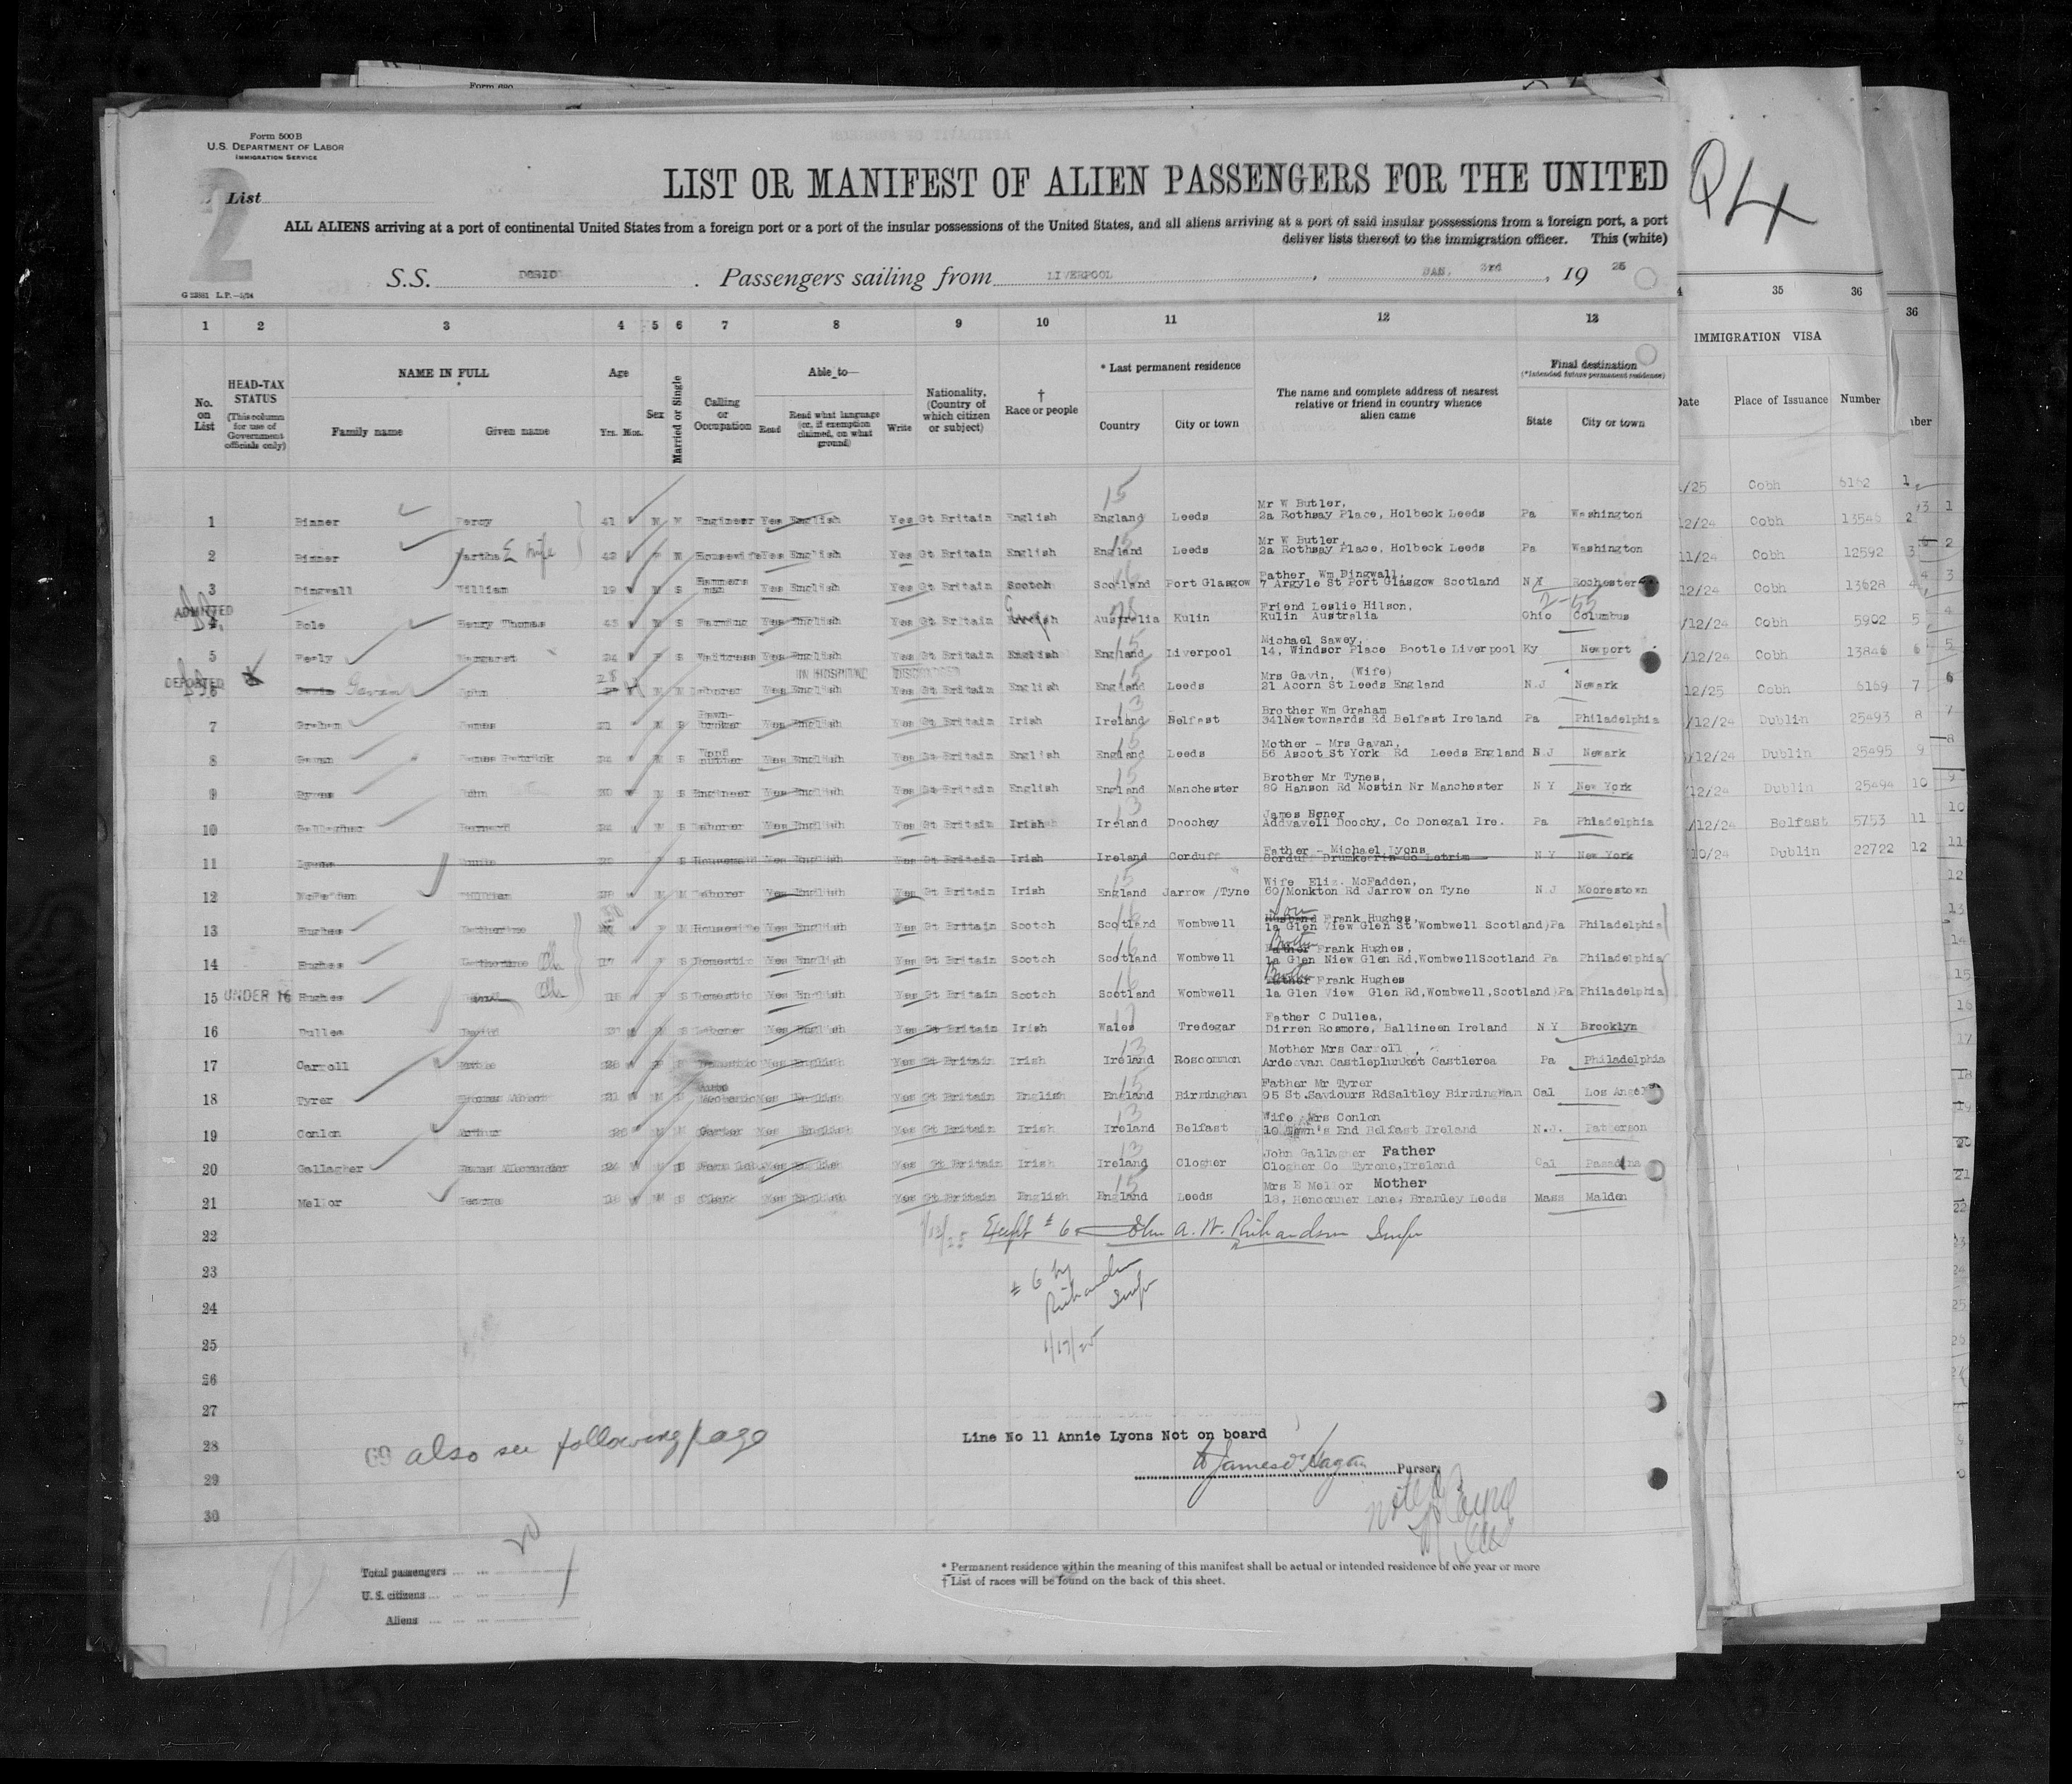 Form 500 B
U.S. DEPARTMENT OF LABOR
IMMIGRATION SERVICE
2
List
LIST OR MANIFEST OF ALIEN PASSENGERS FOR THE UNITED
ALL ALIENS arriving at a port of continental United States from a foreign port or a port of the insular possessions of the United States, and all aliens arriving at a port of said insular possessions from a foreign port, a port
deliver lists thereof to the immigration officer. This (white)
S.S. DORIC. Passengers sailing from LIVERPOOL, JAN. 3rd, 19 25
1 2 3 4 5 6 7 8 9 10 11 12 13
No. on List
HEAD-TAX STATUS (This column for use of Government officials only)
NAME IN FULL Family name Given name
Age Yrs. Mos.
Sex
Married or Single
Calling or Occupation
Able to— Read Read what language (or, if exemption claimed, on what ground) Write
Nationality. (Country of which citizen or subject)
† Race or people
* Last permanent residence Country City or town
The name and complete address of nearest relative or friend in country whence alien came
Final destination (*Intended future permanent residence) State City or town
15
Mr W Butler,
1 Binner Percy 41 M M Engineer Yes English Yes Gt Britain English England Leeds 2a Rothsay Place, Holbeck Leeds Pa Washington
Mr W Butler,
2 Binner Martha E wife 42 F M Housewife Yes English Yes Gt Britain English England Leeds 2a Rothsay Place, Holbeck Leeds Pa Washington
Father Wm Dingwall,
3 Dingwall William 19 M S Hammerman Yes English Yes Gt Britain Scotch Scotland Port Glasgow 7 Argyle St Port Glasgow Scotland N Y Rochester
ADMITTED
Friend Leslie Hilson,
4 Pole Henry Thomas 43 M S Farming Yes English Yes Gt Britain Australia Kulin Kulin Australia Ohio Columbus
Michael Sawey,
5 Margaret 24 F S Waitress Yes English Yes Gt Britain English England Liverpool 14, Windsor Place Bootle Liverpool Ky Newport
DEPORTED
IN HOSPITAL DISCHARGED
Mrs Gavin, (Wife)
6 Gavan John 28 M M Laborer Yes English Yes Gt Britain English England Leeds 21 Acorn St Leeds England N.J Newark
Brother Wm Graham
7 Graham James 21 M S Pawnbroker Yes English Yes Gt Britain Irish Ireland Belfast 341Newtownards Rd Belfast Ireland Pa Philadelphia
Mother - Mrs Gavan,
8 Gavan James Patrick 24 M S Yes English Yes Gt Britain English England Leeds 56 Ascot St York Rd Leeds England N.J Newark
Brother Mr Tynes,
9 John M S Engineer Yes English Yes Gt Britain English England Manchester 80 Hanson Rd Mostin Nr Manchester N Y New York
James Boner
10 Gallagher Bernard 24 M S Laborer Yes English Yes Gt Britain Irish Ireland Doochey Addvavell Doochy, Co Donegal Ire. Pa Philadelphia
Father - Michael Lyons
11 Lyons Annie F S Housemaid Yes English Yes Gt Britain Irish Ireland Corduff Corduff Drumkerrin Co Letrim N Y New York
Wife Eliz. McFadden,
12 McFadden William M M Laborer Yes English Yes Gt Britain Irish England Jarrow /Tyne 60/Monkton Rd Jarrow on Tyne N.J Moorestown
Son
Husband Frank Hughes,
13 Hughes Catherine F M Housewife Yes English Yes Gt Britain Scotch Scotland Wombwell 1a Glen View Glen St Wombwell Scotland) Pa Philadelphia
Brother
Father Frank Hughes,
14 Hughes Catherine 17 F S Domestic Yes English Yes Gt Britain Scotch Scotland Wombwell 1a Glen Niew Glen Rd,WombwellScotland Pa Philadelphia
Father Frank Hughes
15 UNDER 16 Hughes F S Domestic Yes English Yes Gt Britain Scotch Scotland Wombwell 1a Glen View Glen Rd,Wombwell,Scotland) Pa Philadelphia
Father C Dullea,
16 Dullea David M S Laborer Yes English Yes Gt Britain Irish Wales Tredegar Dirren Rosmore, Ballineen Ireland N Y Brooklyn
Mother Mrs Carroll,
17 Carroll F S Domestic Yes English Yes Gt Britain Irish Ireland Roscommon Ardeevan Castleplunket Castlerea Pa Philadelphia
Father Mr Tyrer
18 Tyrer Thomas Albert 21 M S Auto Mechanic Yes English Yes Gt Britain English England Birmingham 95 St.Saviours RdSaltley Birmingham Cal Los Angel
Wife Mrs Conlon
19 Conlon Arthur M M Carter Yes English Yes Gt Britain Irish Ireland Belfast 10 Town's End Belfast Ireland N.J. Patterson
John Gallagher Father
20 Gallagher James Alexander 24 M S Farm Lab. Yes English Yes Gt Britain Irish Ireland Clogher Clogher Co Tyrone,Ireland Cal Pasadena
Mrs E Mellor Mother
21 Mellor George M S Clerk Yes English Yes Gt Britain English England Leeds 18, Henconner Lane, Bramley Leeds Mass Malden
22 Except # 6 John A. W. Richardson Inspr
23
# 6 by Richardson Inspr
24
25 1/17/25
26
27
28 also see following page
Line No 11 Annie Lyons Not on board
29 Purser.
30
Noted
20
Total passengers
U. S. citizens
Aliens
* Permanent residence within the meaning of this manifest shall be actual or intended residence of one year or more
† List of races will be found on the back of this sheet.
35 36
36
IMMIGRATION VISA
Date Place of Issuance Number
/25 Cobh 6162 1
12/24 Cobh 13546 2
11/24 Cobh 12592 3
12/24 Cobh 13628 4
/12/24 Cobh 5902 5
/12/24 Cobh 13846 6
12/25 Cobh 6169 7
/12/24 Dublin 25493 8
/12/24 Dublin 25495 9
12/24 Dublin 25494 10
/12/24 Belfast 5753 11
10/24 Dublin 22722 12